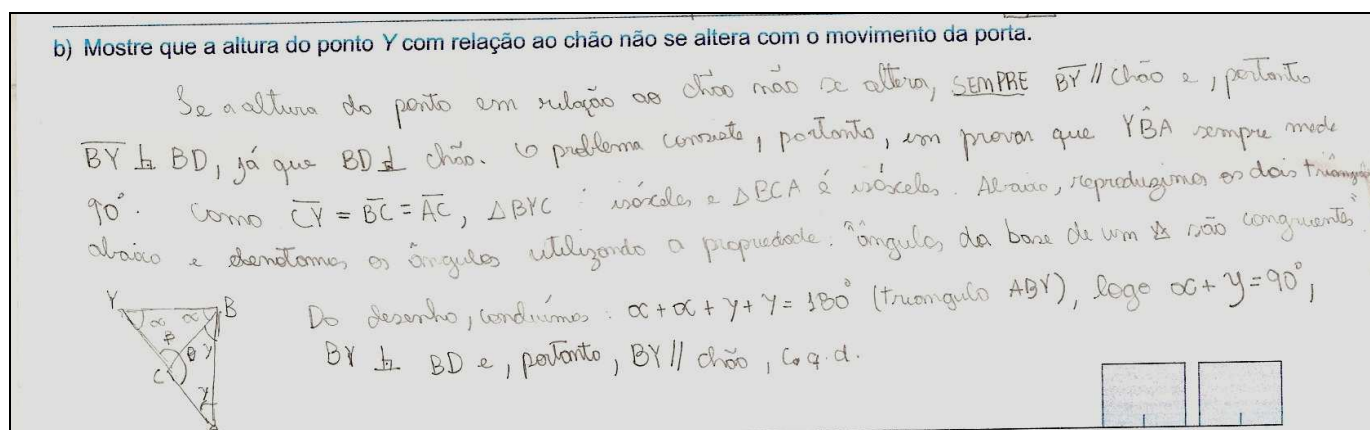 b) Mostre que a altura do ponto Y com relação ao chão não se altera com o movimento da porta.
Se a altura do ponto em relação ao chão não se altera, SEMPRE B̅Y̅ // chão e, portanto
B̅Y̅ ⊥ BD, já que BD ⊥ chão. O problema consiste, portanto, em provar que YB̂A sempre mede
90°. Como C̅Y̅ = B̅C̅ = A̅C̅, △BYC isósceles e △BCA é isósceles. Abaixo, reproduzimos os dois triângulos
abaixo e denotamos os ângulos utilizando a propriedade: "ângulos da base de um △ são congruentes".
Do desenho, concluímos: x + x + y + y = 180° (triangulo ABY), logo x + y = 90°,
BY ⊥ BD e, portanto, BY // chão, c.q.d.
Y B
x x
β
θ y
C
y